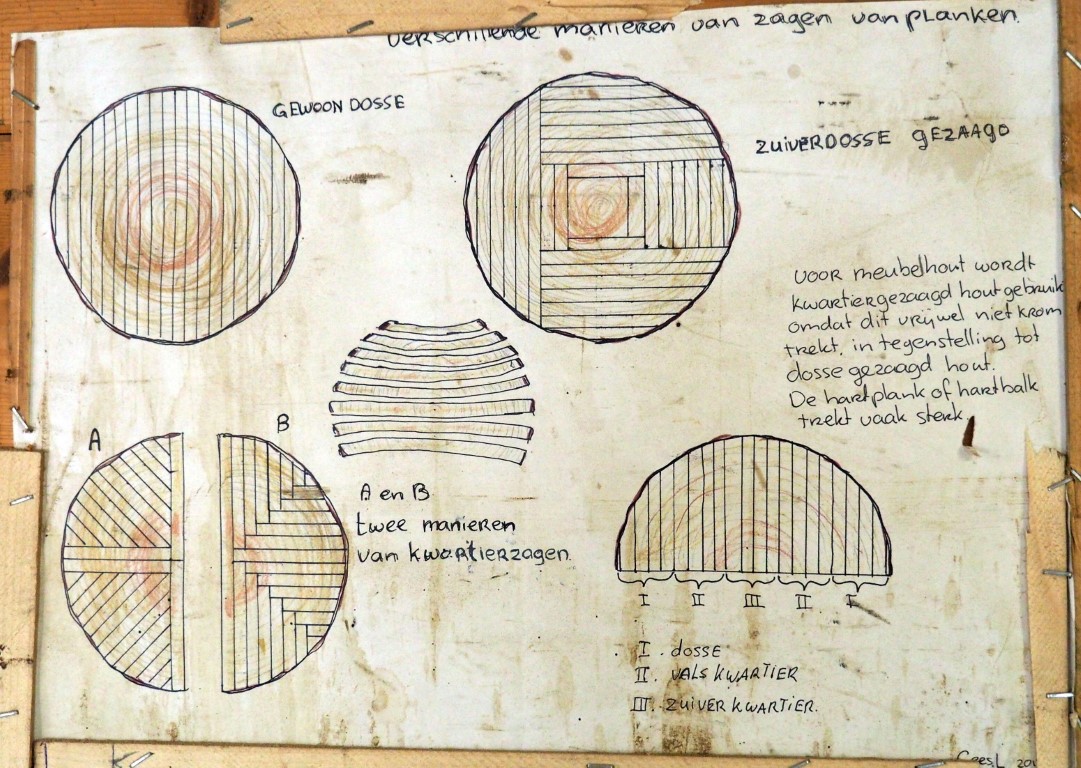 verschillende manieren van zagen van planken.
GEWOON DOSSE
ZUIVERDOSSE GEZAAGD
voor meubelhout wordt
kwartiergezaagd hout gebruik
omdat dit vrijwel niet krom
trekt, in tegenstelling tot
dosse gezaagd hout.
De hartplank of hartbalk
trekt vaak sterk.
A
B
A en B
twee manieren
van kwartierzagen.
I II III II I
I. dosse
II. VALS KWARTIER
III. ZUIVER KWARTIER.
Cees.L 201